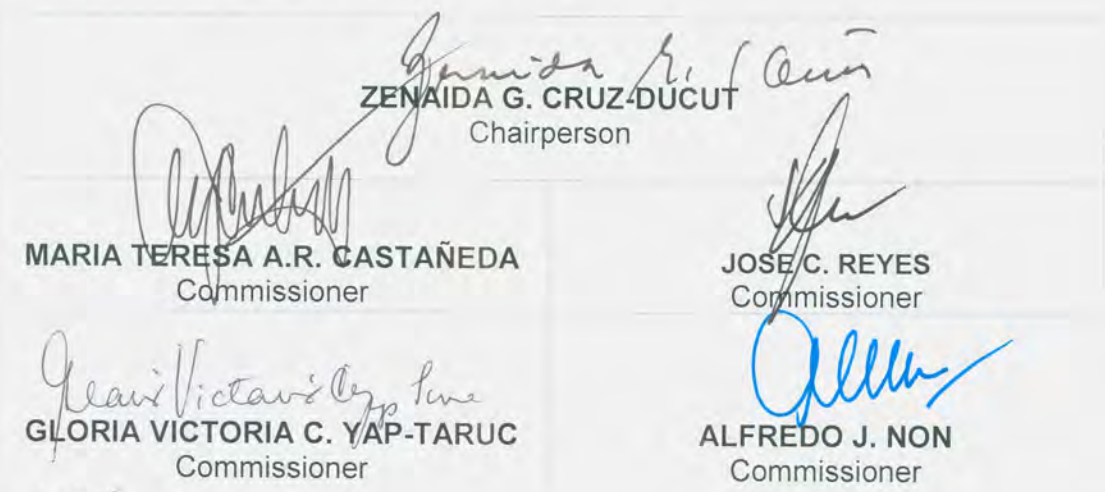 ZENAIDA G. CRUZ-DUCUT
Chairperson
MARIA TERESA A.R. CASTAÑEDA
Commissioner
JOSE C. REYES
Commissioner
GLORIA VICTORIA C. YAP-TARUC
Commissioner
ALFREDO J. NON
Commissioner